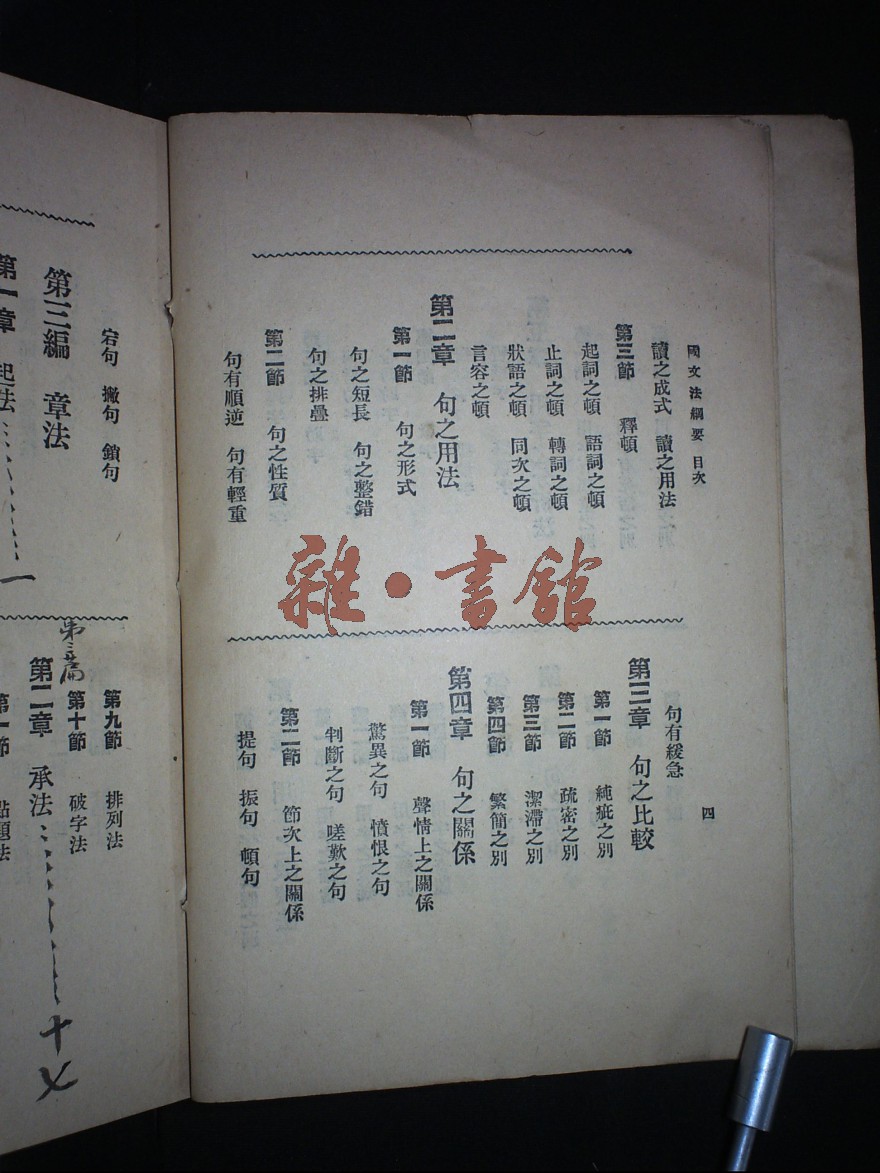 國文法綱要 目次
四
讀之成式 讀之用法
第三節 釋頓
起詞之頓 語詞之頓
止詞之頓 轉詞之頓
狀語之頓 同次之頓
言容之頓
第二章 句之用法
第一節 句之形式
句之短長 句之整錯
句之排疊
第二節 句之性質
句有順逆 句有輕重
句有緩急
第三章 句之比較
第一節 純疵之別
第二節 疏密之別
第三節 潔滯之別
第四節 繁簡之別
第四章 句之關係
第一節 聲情上之關係
驚異之句 憤恨之句
判斷之句 嗟歎之句
第二節 節次上之關係
提句 振句 頓句
宕句 撇句 鎖句
第三編 章法
第一章 起法 一
第九節 排列法
第十節 破字法
第三篇
第二章 承法 十七
第一節 點題法
雜·書舘